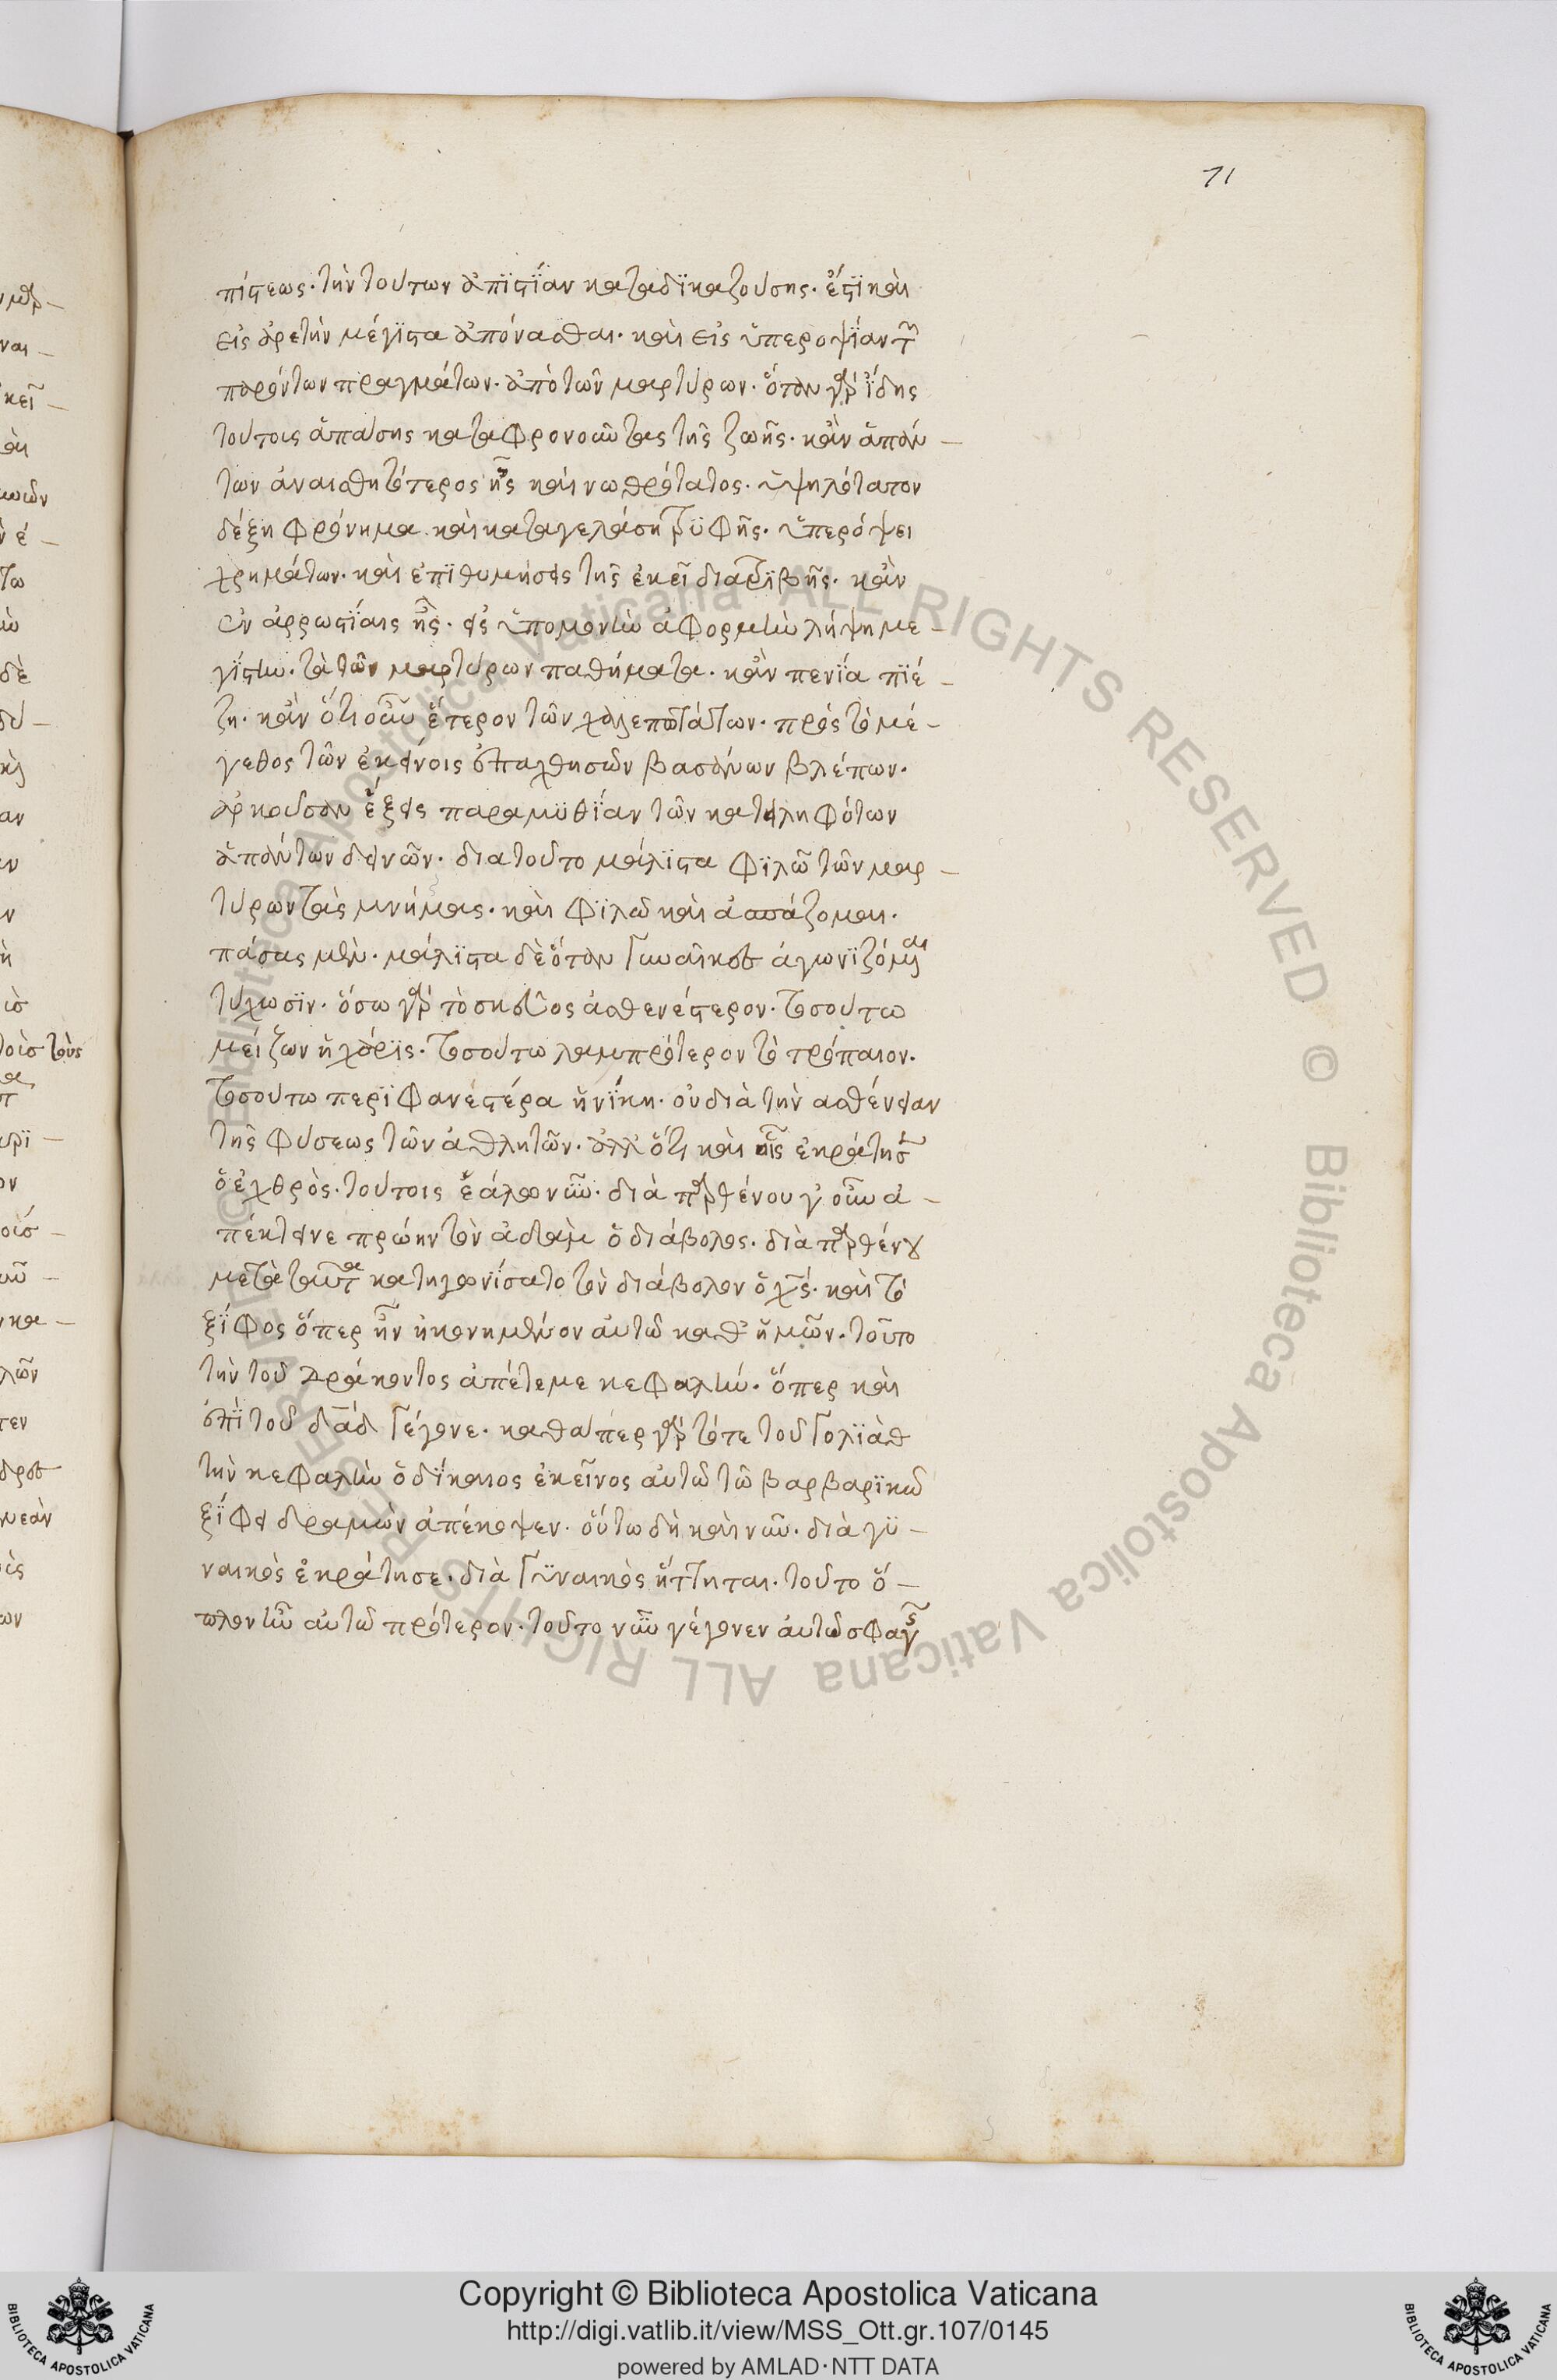 71
πίστεως· τὴν τούτων ἀπϊστΐαν καταδϊκαζούσης. ἔστϊ καὶ
εἰς ἀρετὴν μέγϊστα ἀπόνασθαι· καὶ εἰς ὑπεροψΐαν τῶν
παρόντων πραγμάτων· ἀπὸ τῶν μαρτύρων. ὅταν γὰρ ἴδης
τούτοις ἁπάσης καταφρονοῦντας τῆς ζωῆς· κἂν ἁπάν –
των ἀναισθητότερος ῆς καὶ νωθρότατος· ὑψηλότατον
δέξη φρόνημα καὶ καταγελάση τρϋφῆς· ὑπερόψει
χρημάτων· καὶ ἐπϊθυμήσεις τῆς ἐκεῖ διατρϊβῆς· κἂν
ἐν ἀρρωστΐαις ῆς· εἰς ὑπομονὴν ἀφορμὴν λήψη με –
γΐστην· τὰ τῶν μαρτύρων παθήματα· κἂν πενΐα πϊέ –
ζη· κἂν ὁτιοῦν ἕτερον τῶν χαλεπωτάτων· πρὸς τὸ μέ –
γεθος τῶν ἐκείνοις ἐπαχθησῶν βασάνων βλέπων·
ἀρκοῦσαν ἕξεις παραμϋθΐαν τῶν κατειληφότων
ἁπάντων δεινῶν. διατοῦτο μάλϊστα φϊλῶ τῶν μαρ –
τύρων τὰς μνήμας. καὶ φϊλῶ καὶ ἀσπάζομαι·
πάσας μὲν· μάλϊστα δὲ ὅταν γυναῖκες ἀγωνϊζόμεναι
τύχωσϊν· ὅσω γὰρ τὸ σκεῦος ἀσθενέστερον· τοσούτω
μείζων ἡ χάρϊς· τοσούτω λαμπρότερον τὸ τρόπαιον·
τοσούτω περϊφανεστέρα ἡ νΐκη· οὐ διὰ τὴν ασθένειαν
τῆς φύσεως τῶν ἀθλητῶν· ἀλλ' ὅτι καὶ οἷς ἐκράτησεν
ὁ ἐχθρὸς· τούτοις ἑάλω νῦν· διὰ παρθένου γ' οὖν ἀ –
πέκτεινε πρώην τὸν ἀδὰμ ὁ διάβολος· διὰ παρθένου
μετὰ ταῦτα κατηγωνΐσατο τὸν διάβολον ὁ χς· καὶ τὸ
ξΐφος ὅπερ ἦν ἠκονημένον ἀυτῶ καθ' ἡμῶν· τοῦτο
τὴν τοῦ δράκοντος ἀπέτεμε κεφαλήν· ὅπερ καὶ
ἐπῒ τοῦ δαδ γέγονε· καθάπερ γὰρ τότε τοῦ γολϊὰθ
τὴν κεφαλὴν ὁ δΐκαιος ἐκεῖνος ἀυτῶ τῶ βαρβαρϊκῶ
ξΐφει δραμὼν ἀπέκοψεν· οὕτω δὴ καὶ νῦν· διὰ γϋ –
ναικὸς ἐκράτησε· διὰ γϋναικὸς ἥττηται· τοῦτο ὅ –
πλον ἦν αὐτῶ πρότερον· τοῦτο νῦν γέγονεν ἀυτῶ σφαγῆς
Copyright © Biblioteca Apostolica Vaticana
http://digi.vatlib.it/view/MSS_Ott.gr.107/0145
powered by AMLAD·NTT DATA